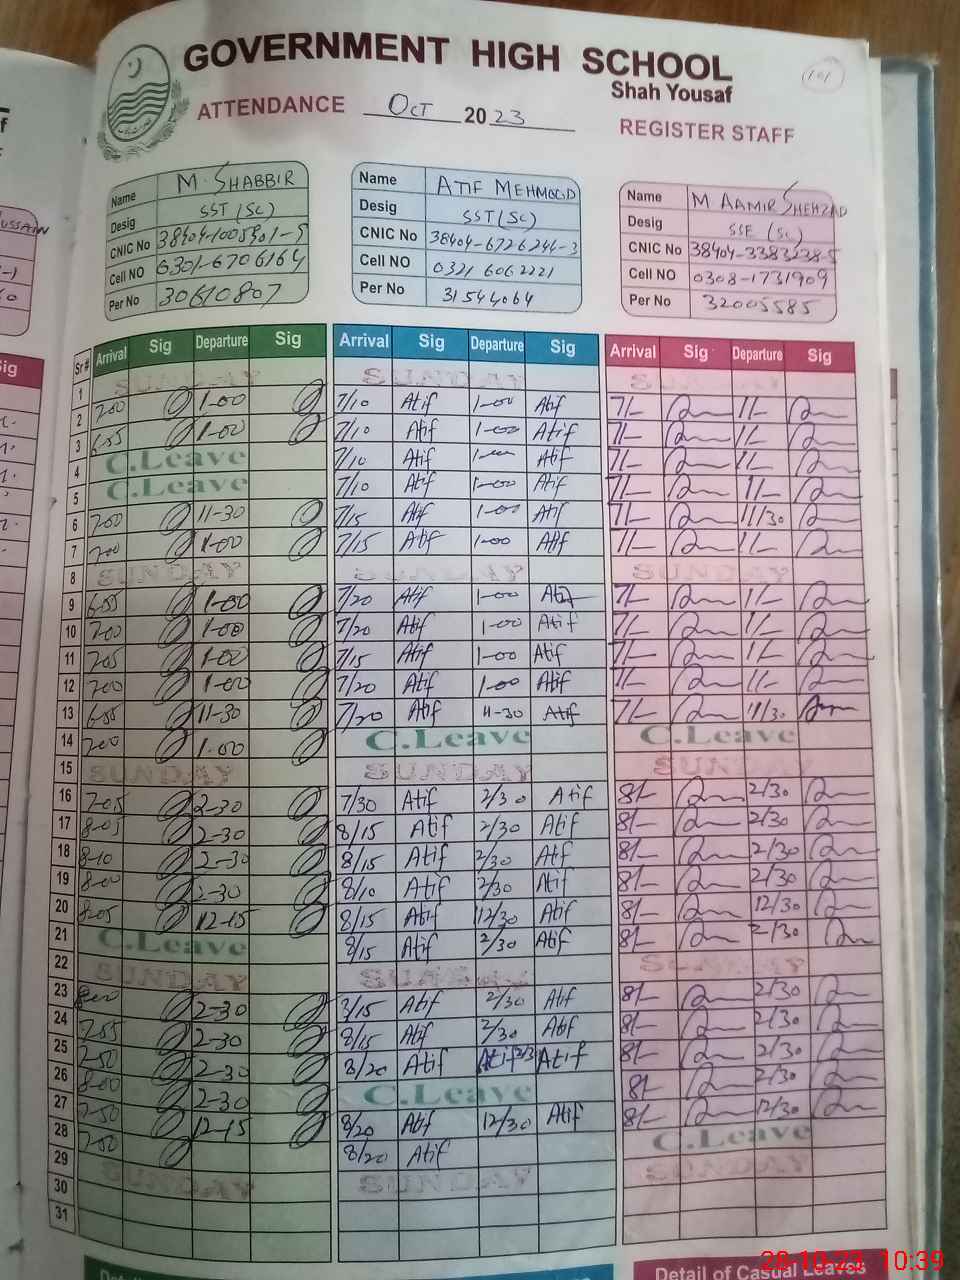 GOVERNMENT HIGH SCHOOL
Shah Yousaf
101
ATTENDANCE Oct 2023 REGISTER STAFF
Name M. SHABBIR
Desig SST (SC)
CNIC No
Cell NO
Per No 30610807
Name ATIF MEHMOOD
Desig SST (SC)
CNIC No 38404-6726246-3
Cell NO 0321 6062221
Per No 31544064
Name M AAMIR SHEHZAD
Desig SSE (SC)
CNIC No 38404-3383238-5
Cell NO 0308-1731909
Per No 32005585
Sr# Arrival Sig Departure Sig Arrival Sig Departure Sig Arrival Sig Departure Sig
1 SUNDAY SUNDAY SUNDAY
2 700 1-00 7/10 Atif 1-00 Atif 7/- 1/-
3 655 1-00 7/10 Atif 1-00 Atif 7/- 1/-
4 C.Leave 7/10 Atif 1-00 Atif 7/- 1/-
5 C.Leave 7/10 Atif 1-00 Atif 7/- 1/-
6 700 11-30 7/15 Atif 1-00 Atif 7/- 11/30
7 700 1-00 7/15 Atif 1-00 Atif 7/- 1/-
8 SUNDAY SUNDAY SUNDAY
9 655 1-00 7/20 Atif 1-00 Atif 7/- 1/-
10 700 1-00 7/20 Atif 1-00 Atif 7/- 1/-
11 705 1-00 7/15 Atif 1-00 Atif 7/- 1/-
12 700 1-00 7/20 Atif 1-00 Atif 7/- 1/-
13 655 11-30 7/20 Atif 11-30 Atif 7/- 11/30
14 700 1-00 C.Leave C.Leave
15 SUNDAY SUNDAY SUNDAY
16 2-30 7/30 Atif 2/30 Atif 8/- 2/30
17 8-05 2-30 8/15 Atif 2/30 Atif 8/- 2/30
18 8-10 2-30 8/15 Atif 2/30 Atif 8/- 2/30
19 8-00 2-30 8/10 Atif 2/30 Atif 8/- 2/30
20 8-05 12-15 8/15 Atif 12/30 Atif 8/- 12/30
21 C.Leave 8/15 Atif 2/30 Atif 8/- 2/30
22 SUNDAY SUNDAY SUNDAY
23 800 2-30 8/15 Atif 2/30 Atif 8/- 2/30
24 755 2-30 8/15 Atif 2/30 Atif 8/- 2/30
25 750 2-30 8/20 Atif Atif 2/3 Atif 8/- 2/30
26 800 2-30 C.Leave 8/- 2/30
27 750 12-15 8/20 Atif 12/30 Atif 8/- 12/30
28 750 8/20 Atif C.Leave
29 SUNDAY SUNDAY SUNDAY
30
31
Detail of Casual Leaves
28-10-23 10:39